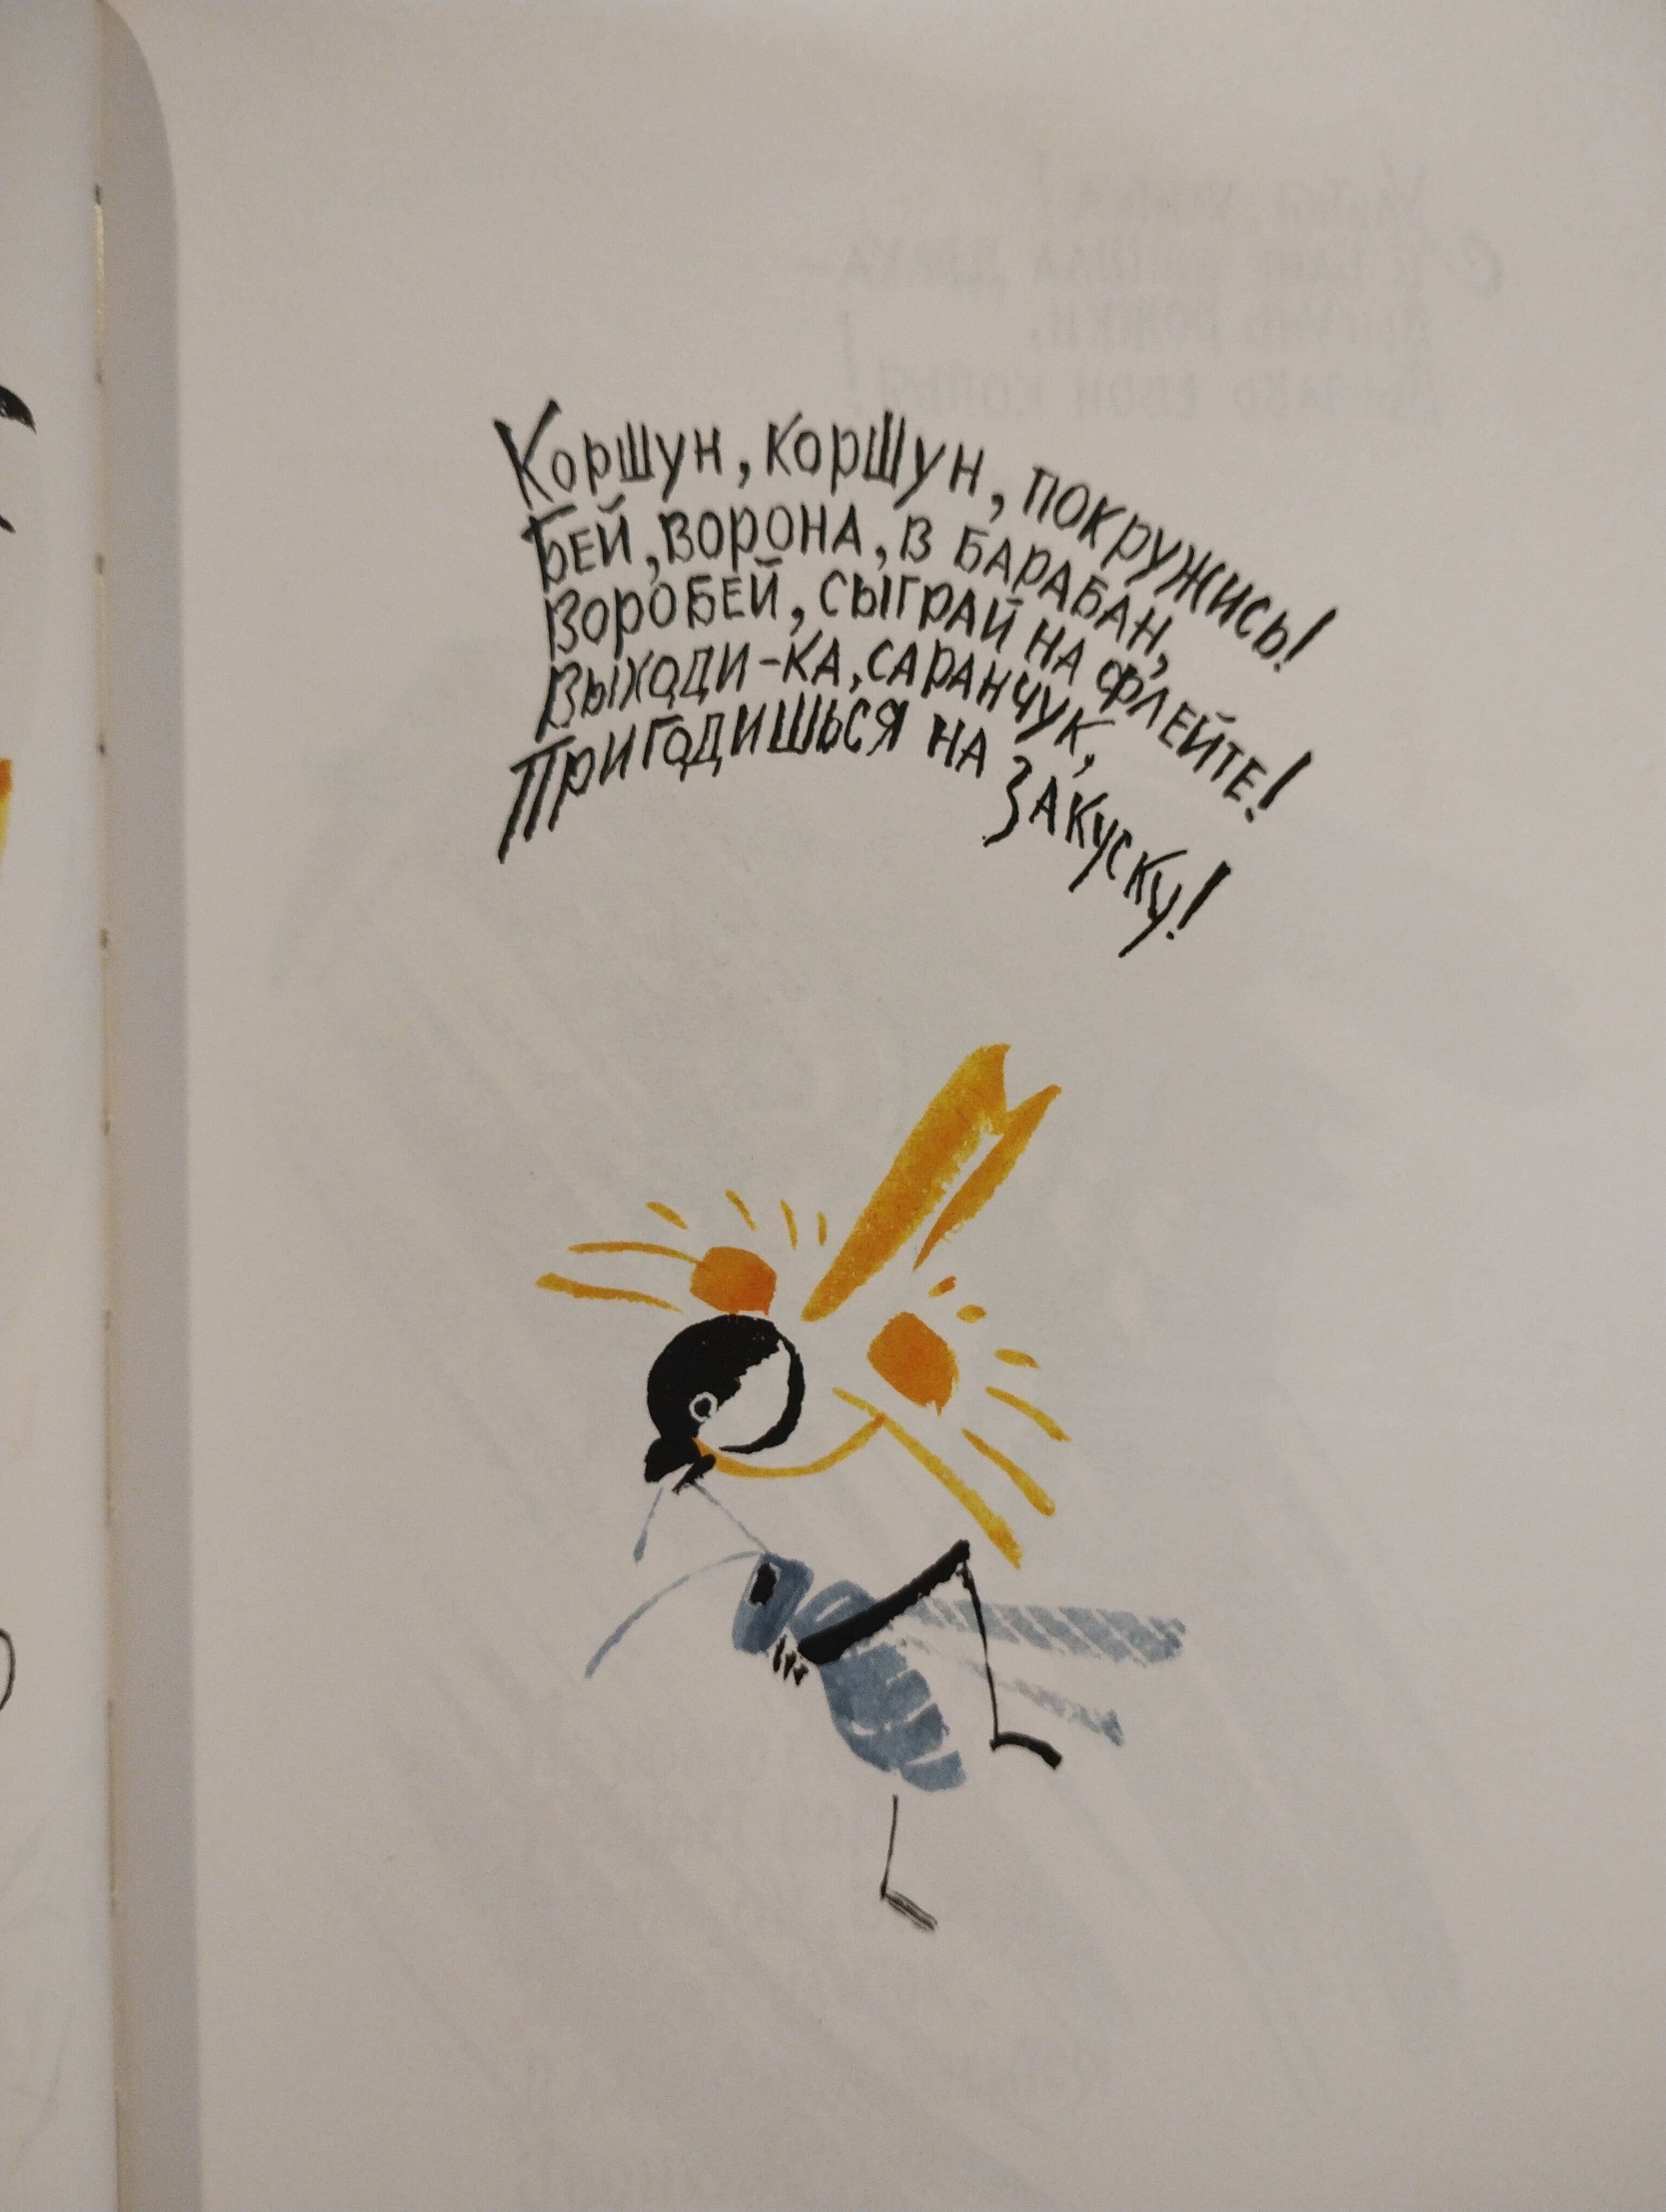 Коршун, коршун, покружись!
Бей, ворона, в барабан,
Воробей, сыграй на флейте!
Выходи-ка, саранчук,
Пригодишься на закуску!